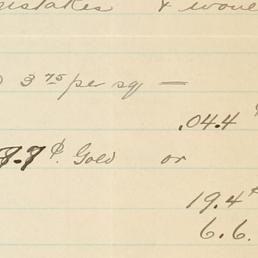 mistakes & would
3 75 per sq —
.04.4
8.9 ₵. Gold or
19.4
6.6.